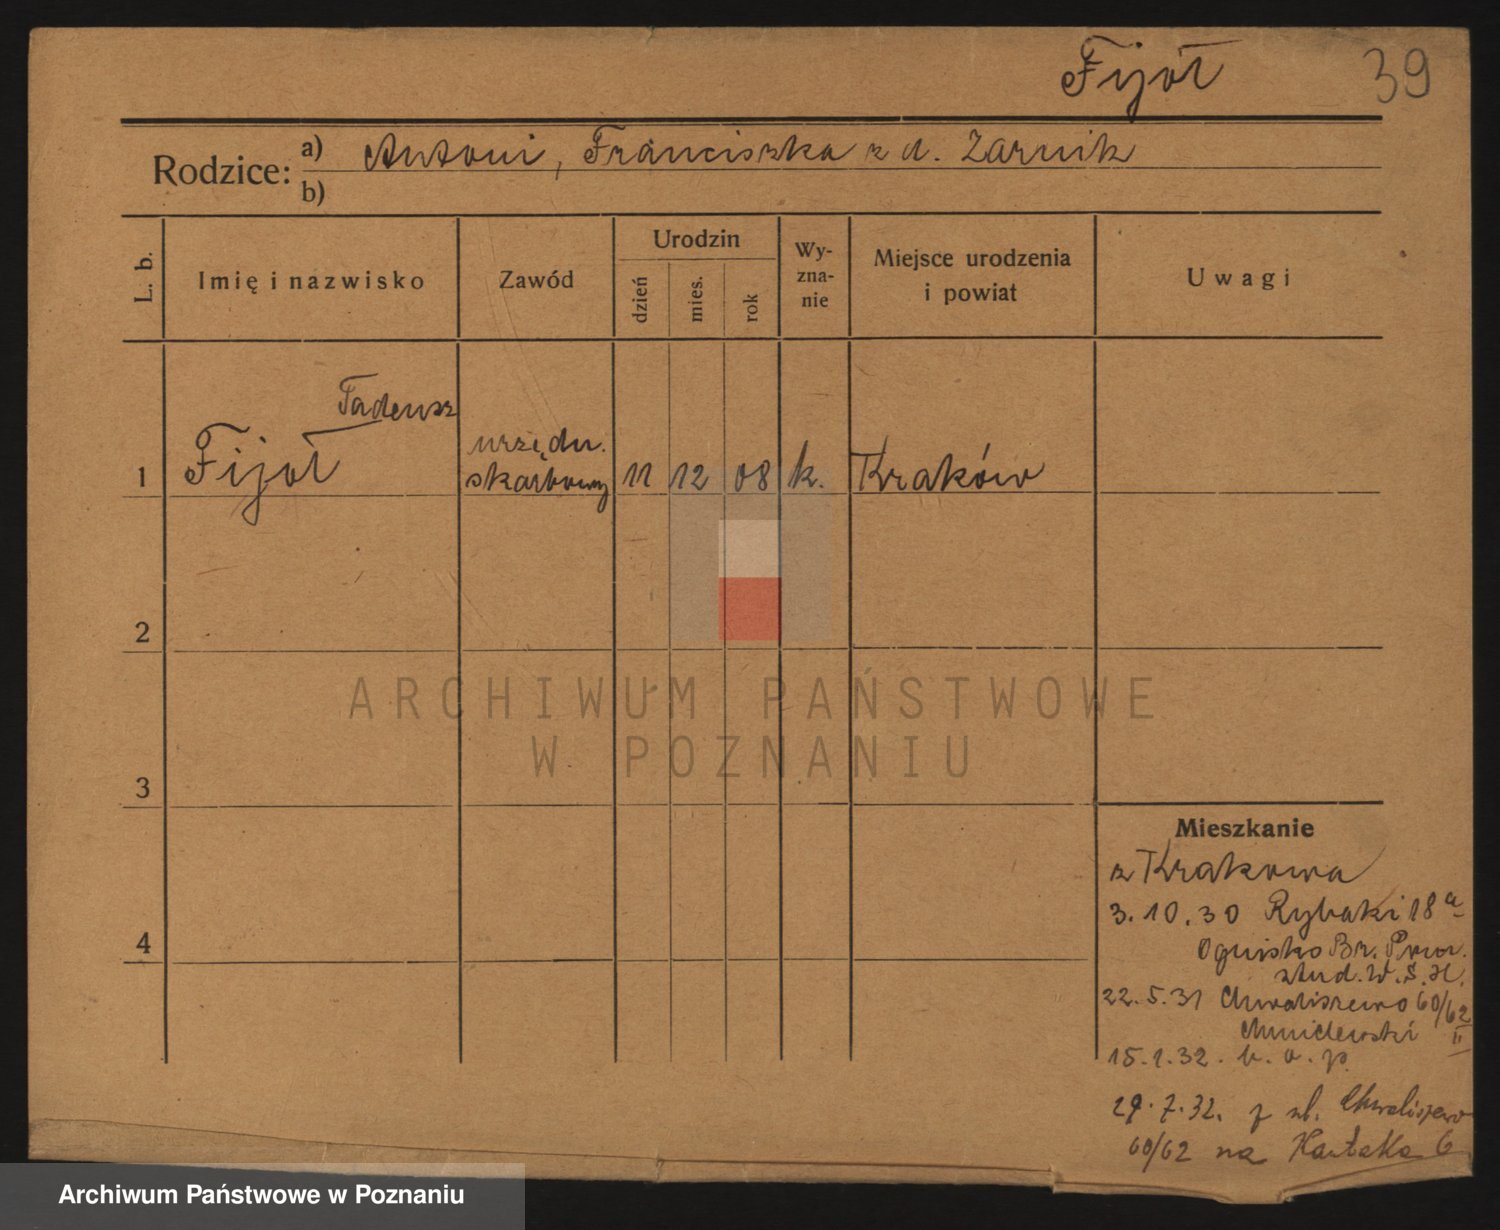 Fijoł 39
Rodzice: a) Antoni, Franciszka z d. Żarnik
b)
L. b. Imię i nazwisko Zawód Urodzin dzień mies. rok Wyznanie Miejsce urodzenia i powiat Uwagi
Tadeusz
urzędn.
1 Fijoł skarbowy 11 12 08 k. Kraków
2
ARCHIWUM PAŃSTWOWE
W POZNANIU
3
Mieszkanie
z Krakowa
3.10.30 Rybaki 18 a
4
Ognisko Br. Pom.
stud. W.S.H.
22.5.31 Chwaliszewo 60/62
II
15.1.32. b.o.p.
29.7.32. z ul. Chwaliszewo
60/62 na 6
Archiwum Państwowe w Poznaniu